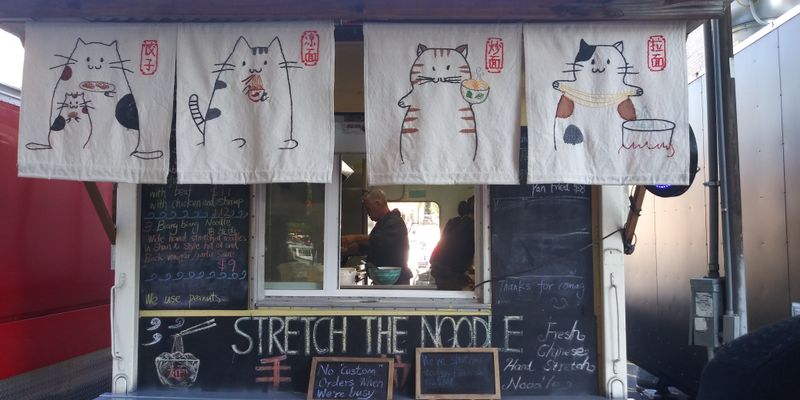 饺子
凉面
炒面
拉面
with Beef $11
with chicken and shrimp
Biang biang Noodle
Wide hand stretched noodles
in Shan Xi style hot oil and
Black vinegar garlic sauce
$9
We use peanuts
Pan Fried $8
Thanks for coming
STRETCH THE NOODLE
手
Fresh
Chinese
Hand Stretch
Noodle
No "Custom"
Orders When
We're busy